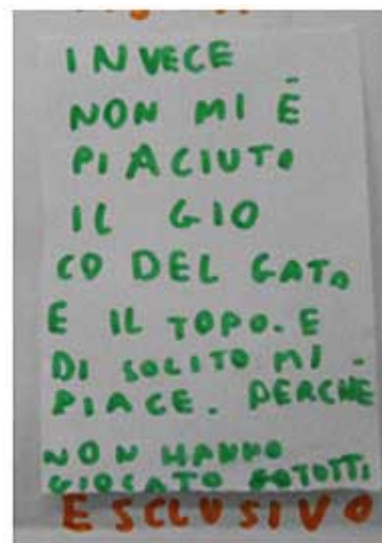 INVECE
NON MI È
PIACIUTO
IL GIO
CO DEL GATO
E IL TOPO. E
DI SOLITO MI
PIACE. PERCHE
NON HANNO
GIOCATO
ESCLUSIVO